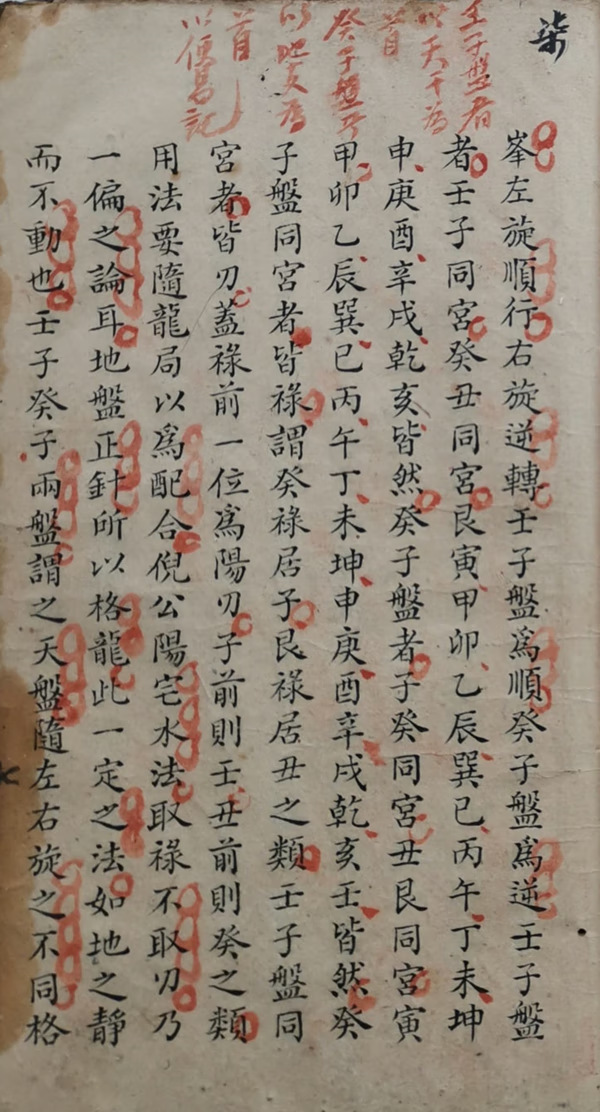 柒
壬子盤者
以天干爲
首
癸子盤乃
以地支爲
首
以便易記
峯左旋順行右旋逆轉壬子盤爲順癸子盤爲逆壬子盤
者壬子同宮癸丑同宮艮寅甲卯乙辰巽巳丙午丁未坤
申庚酉辛戌乾亥皆然癸子盤者子癸同宮丑艮同宮寅
甲卯乙辰巽巳丙午丁未坤申庚酉辛戌乾亥壬皆然癸
子盤同宮者皆祿謂癸祿居子艮祿居丑之類壬子盤同
宮者皆刃蓋祿前一位爲陽刃子前則壬丑前則癸之類
用法要隨龍局以爲配合倪公陽宅水法取祿不取刃乃
一偏之論耳地盤正針所以格龍此一定之法如地之靜
而不動也壬子癸子兩盤謂之天盤隨左右旋之不同格